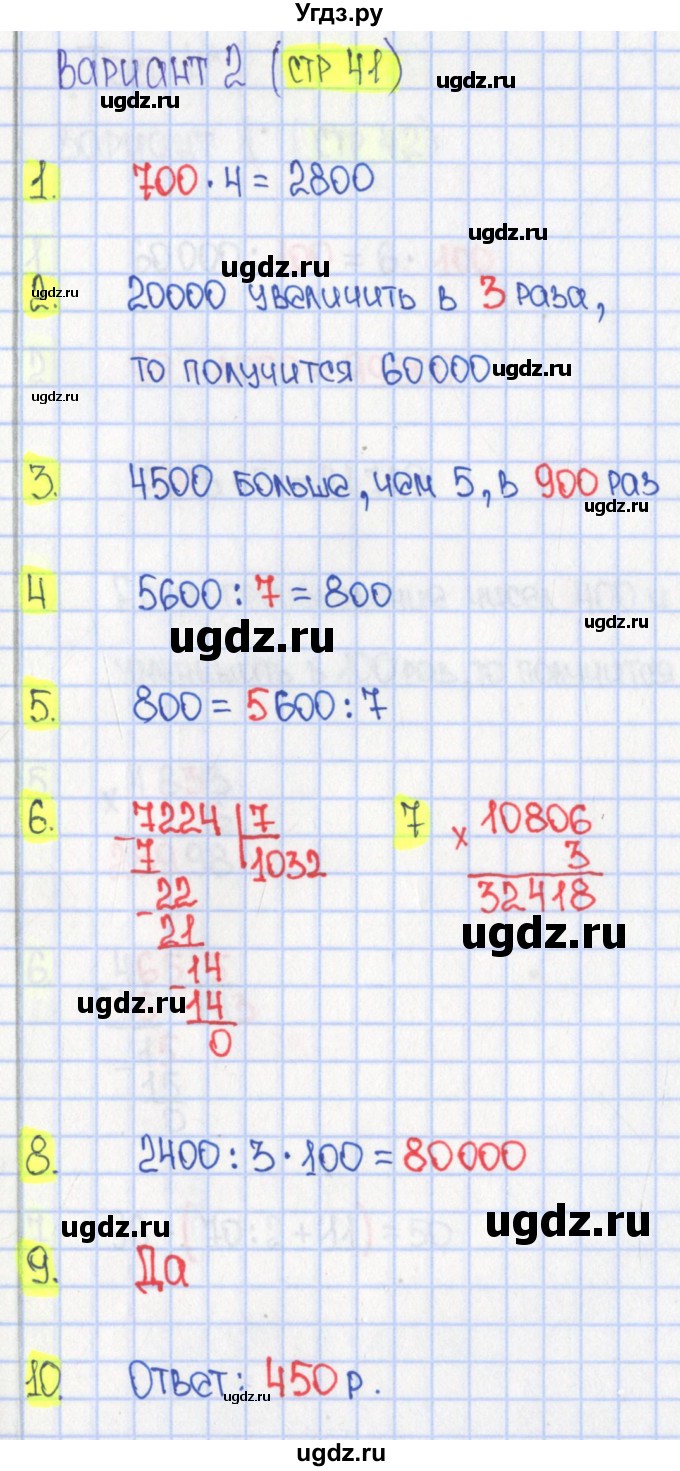 Угдз.ру
Вариант 2 (стр 41)
ugdz.ru
ugdz.ru
1. 700 · 4 = 2800
ugdz.ru
ugdz.ru
ugdz.ru
2. 20000 увеличить в 3 раза,
то получится 60000
ugdz.ru
ugdz.ru
3. 4500 больше, чем 5, в 900 раз
ugdz.ru
4 5600 : 7 = 800
ugdz.ru
ugdz.ru
5. 800 = 5600 : 7
6. 7224 | 7
- 7 1032
22
- 21
14
- 14
0
7 10806
x 3
32418
ugdz.ru
ugdz.ru
8. 2400 : 3 · 100 = 80000
ugdz.ru
ugdz.ru
9. Да
10. Ответ: 450 р.
ugdz.ru
ugdz.ru